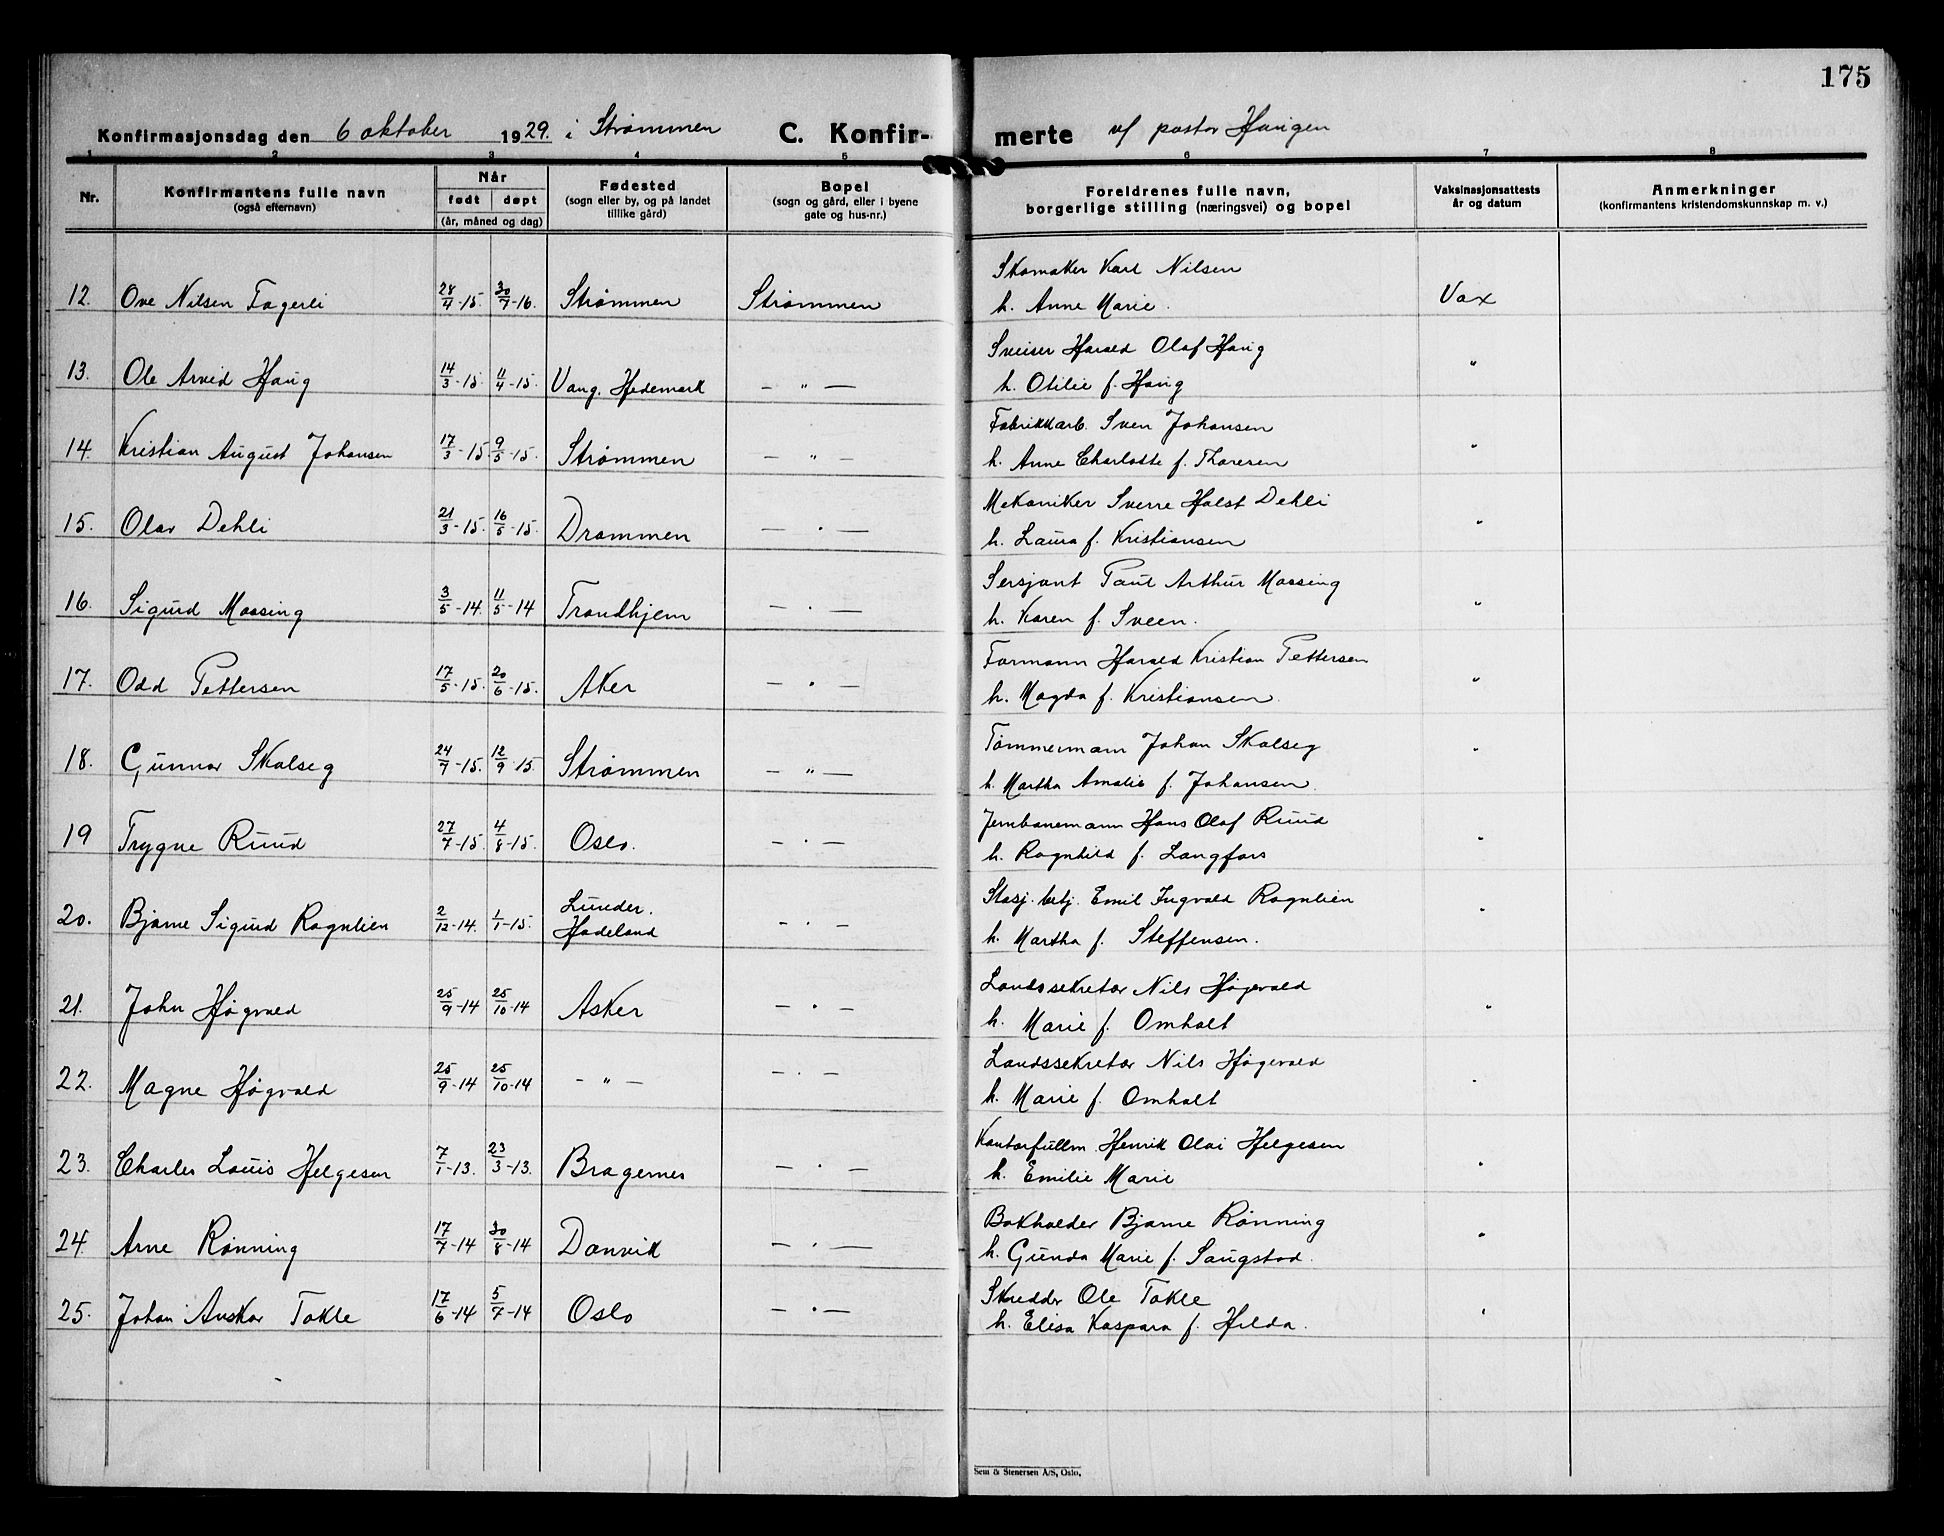 175
Konfirmasjonsdag den 6 oktober 1929. i Strømmen C. Konfir- merte v/ pastor Haugen
1 2 3 4 5 6 7 8
Nr. Konfirmantens fulle navn (også efternavn) Når født døpt (år, måned og dag) Fødested (sogn eller by, og på landet tillike gård) Bopel (sogn og gård, eller i byene gate og hus-nr.) Foreldrenes fulle navn, borgerlige stilling (næringsvei) og bopel Vaksinasjonsattests år og datum Anmerkninger (konfirmantens kristendomskunnskap m. v.)
Skomaker Karl Nilsen
12. Ove Nilsen Fagerli 28/4-15. 30/7-16. Strømmen Strømmen h. Anne Marie. Vax
Sveiser Harald Olaf Haug
13. Ole Arvid Haug 14/3-15. 11/4-15. Vang. Hedemark — " — h. Otilie f. Haug "
Fabrikkarb. Sven Johansen
14. Kristian August Johansen 17/3-15. 9/5-15. Strømmen — " — h. Anne Charlotte f. Thoresen "
Mekaniker Sverre Holst Dehli
15. Olav Dehli 21/3-15. 16/5-15. Drammen — " — h. Laura f. Kristiansen "
Sersjant Paul Arthur Moosing
16. Sigurd Moosing 3/5-14. 11/5-14 Trondhjem — " — h. Karen f. Sveen. "
Formann Harald Kristian Pettersen
17. Odd Pettersen 17/5-15. 20/6-15. Aker — " — h. Magda f. Kristiansen "
Tømmermann Johan Skolseg
18. Gunnar Skolseg 24/7-15. 12/9-15. Strømmen — " — h. Martha Amalie f. Johansen. "
Jernbanemann Hans Olaf Ruud
19 Trygve Ruud 27/7-15. 4/8-15. Oslo. — " — h. Ragnhild f. Langfors "
Stasj. betj. Emil Ingvald Rognlien
20. Bjarne Sigurd Rognlien 2/12-14. 1/1-15. Lunder. Hadeland — " — h. Martha f. Steffensen. "
Landssekretær Nils Høgevold
21. John Høgvold 25/9-14 25/10-14 Asker — " — h. Marie f. Omholt "
Landssekretær Nils Høgevold
22. Magne Høgvold 25/9-14 25/10-14 — " — — " — h. Marie f. Omholt "
Kontorfullm. Henrik Olai Helgesen
23. Charles Louis Helgesen 7/1-13. 23/3-13. Bragernes — " — h. Emilie Marie "
Bokholder Bjarne Rønning
24. Arne Rønning 17/7-14 30/8-14 Danvik — " — h. Gunda Marie f. Saugstad. "
Skredder Ole Takle
25. Johan Anskar Takle 17/6-14 5/7-14 Oslo — " — h. Elisa Kaspara f. Hilda. "
Sem & Stenersen A/S, Oslo.